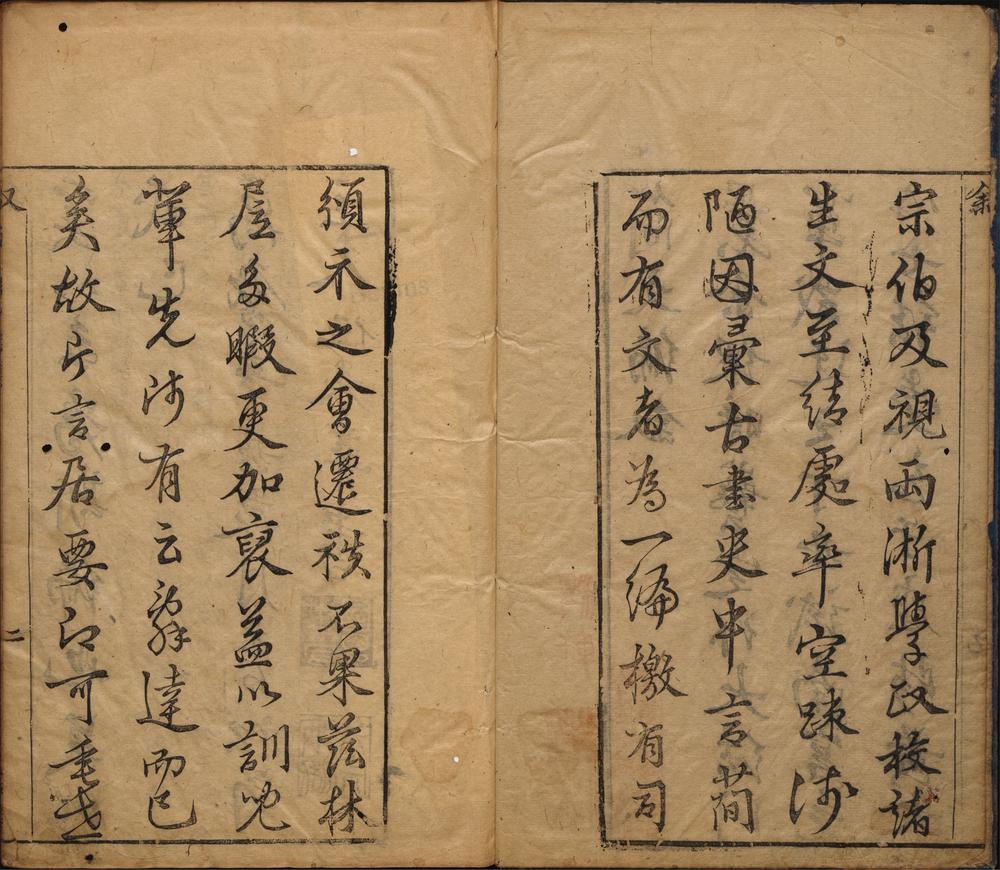 宗伯及視两浙學政校諸
生文至結處率空踈淺
陋因彚古書史中言簡
而有文者為一編檄有司
頒示之會遷秩不果茲林
屋多暇更加裒益以訓兒
輩先師有云辭達而已
矣故片言居要即可垂世
二